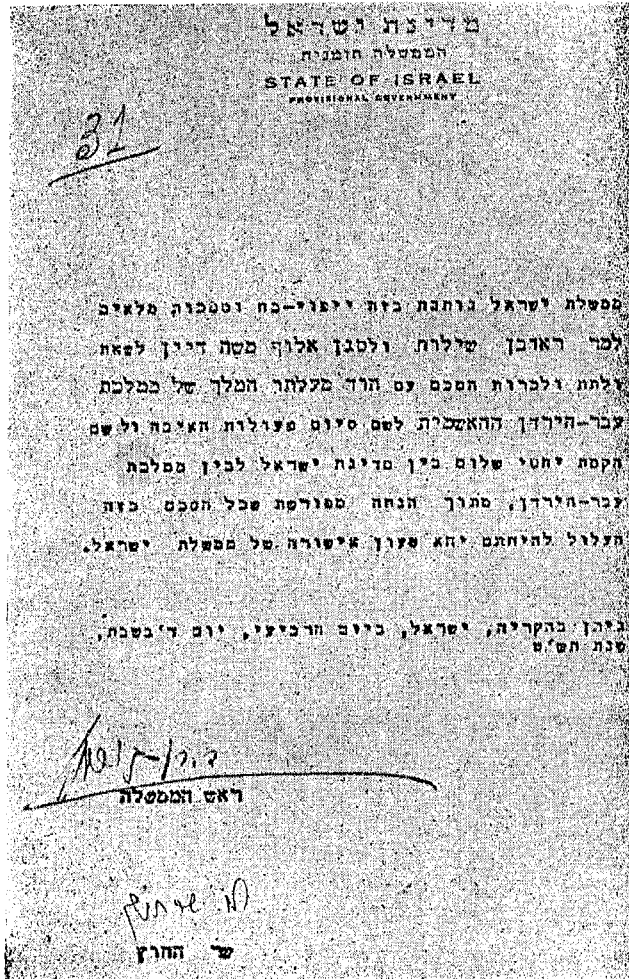 מדינת ישראל
הממשלה הזמנית
STATE OF ISRAEL
PROVISIONAL GOVERNMENT
31
ממשלת ישראל נותנת בזה ייפוי-כח וסמכות מלאים
למר ראובן שילוח ולסגן אלוף משה דיין לשאת
ולתת ולכרות הסכם עם הוד מעלתו המלך של ממלכת
עבר-הירדן ההאשמית לשם סיום פעולות האיבה ולשם
הקמת יחסי שלום בין מדינת ישראל לבין ממלכת
עבר-הירדן, מתוך הנחה מפורשת שכל הסכם כזה
העלול להיחתם יהא טעון אישורה של ממשלת ישראל.
ניתן בהקריה, ישראל, ביום הרביעי, יום ד'בשבט,
שנת תש"ט
ד. בן-גוריון
ראש הממשלה
מ. שרתוק
שר החוץ